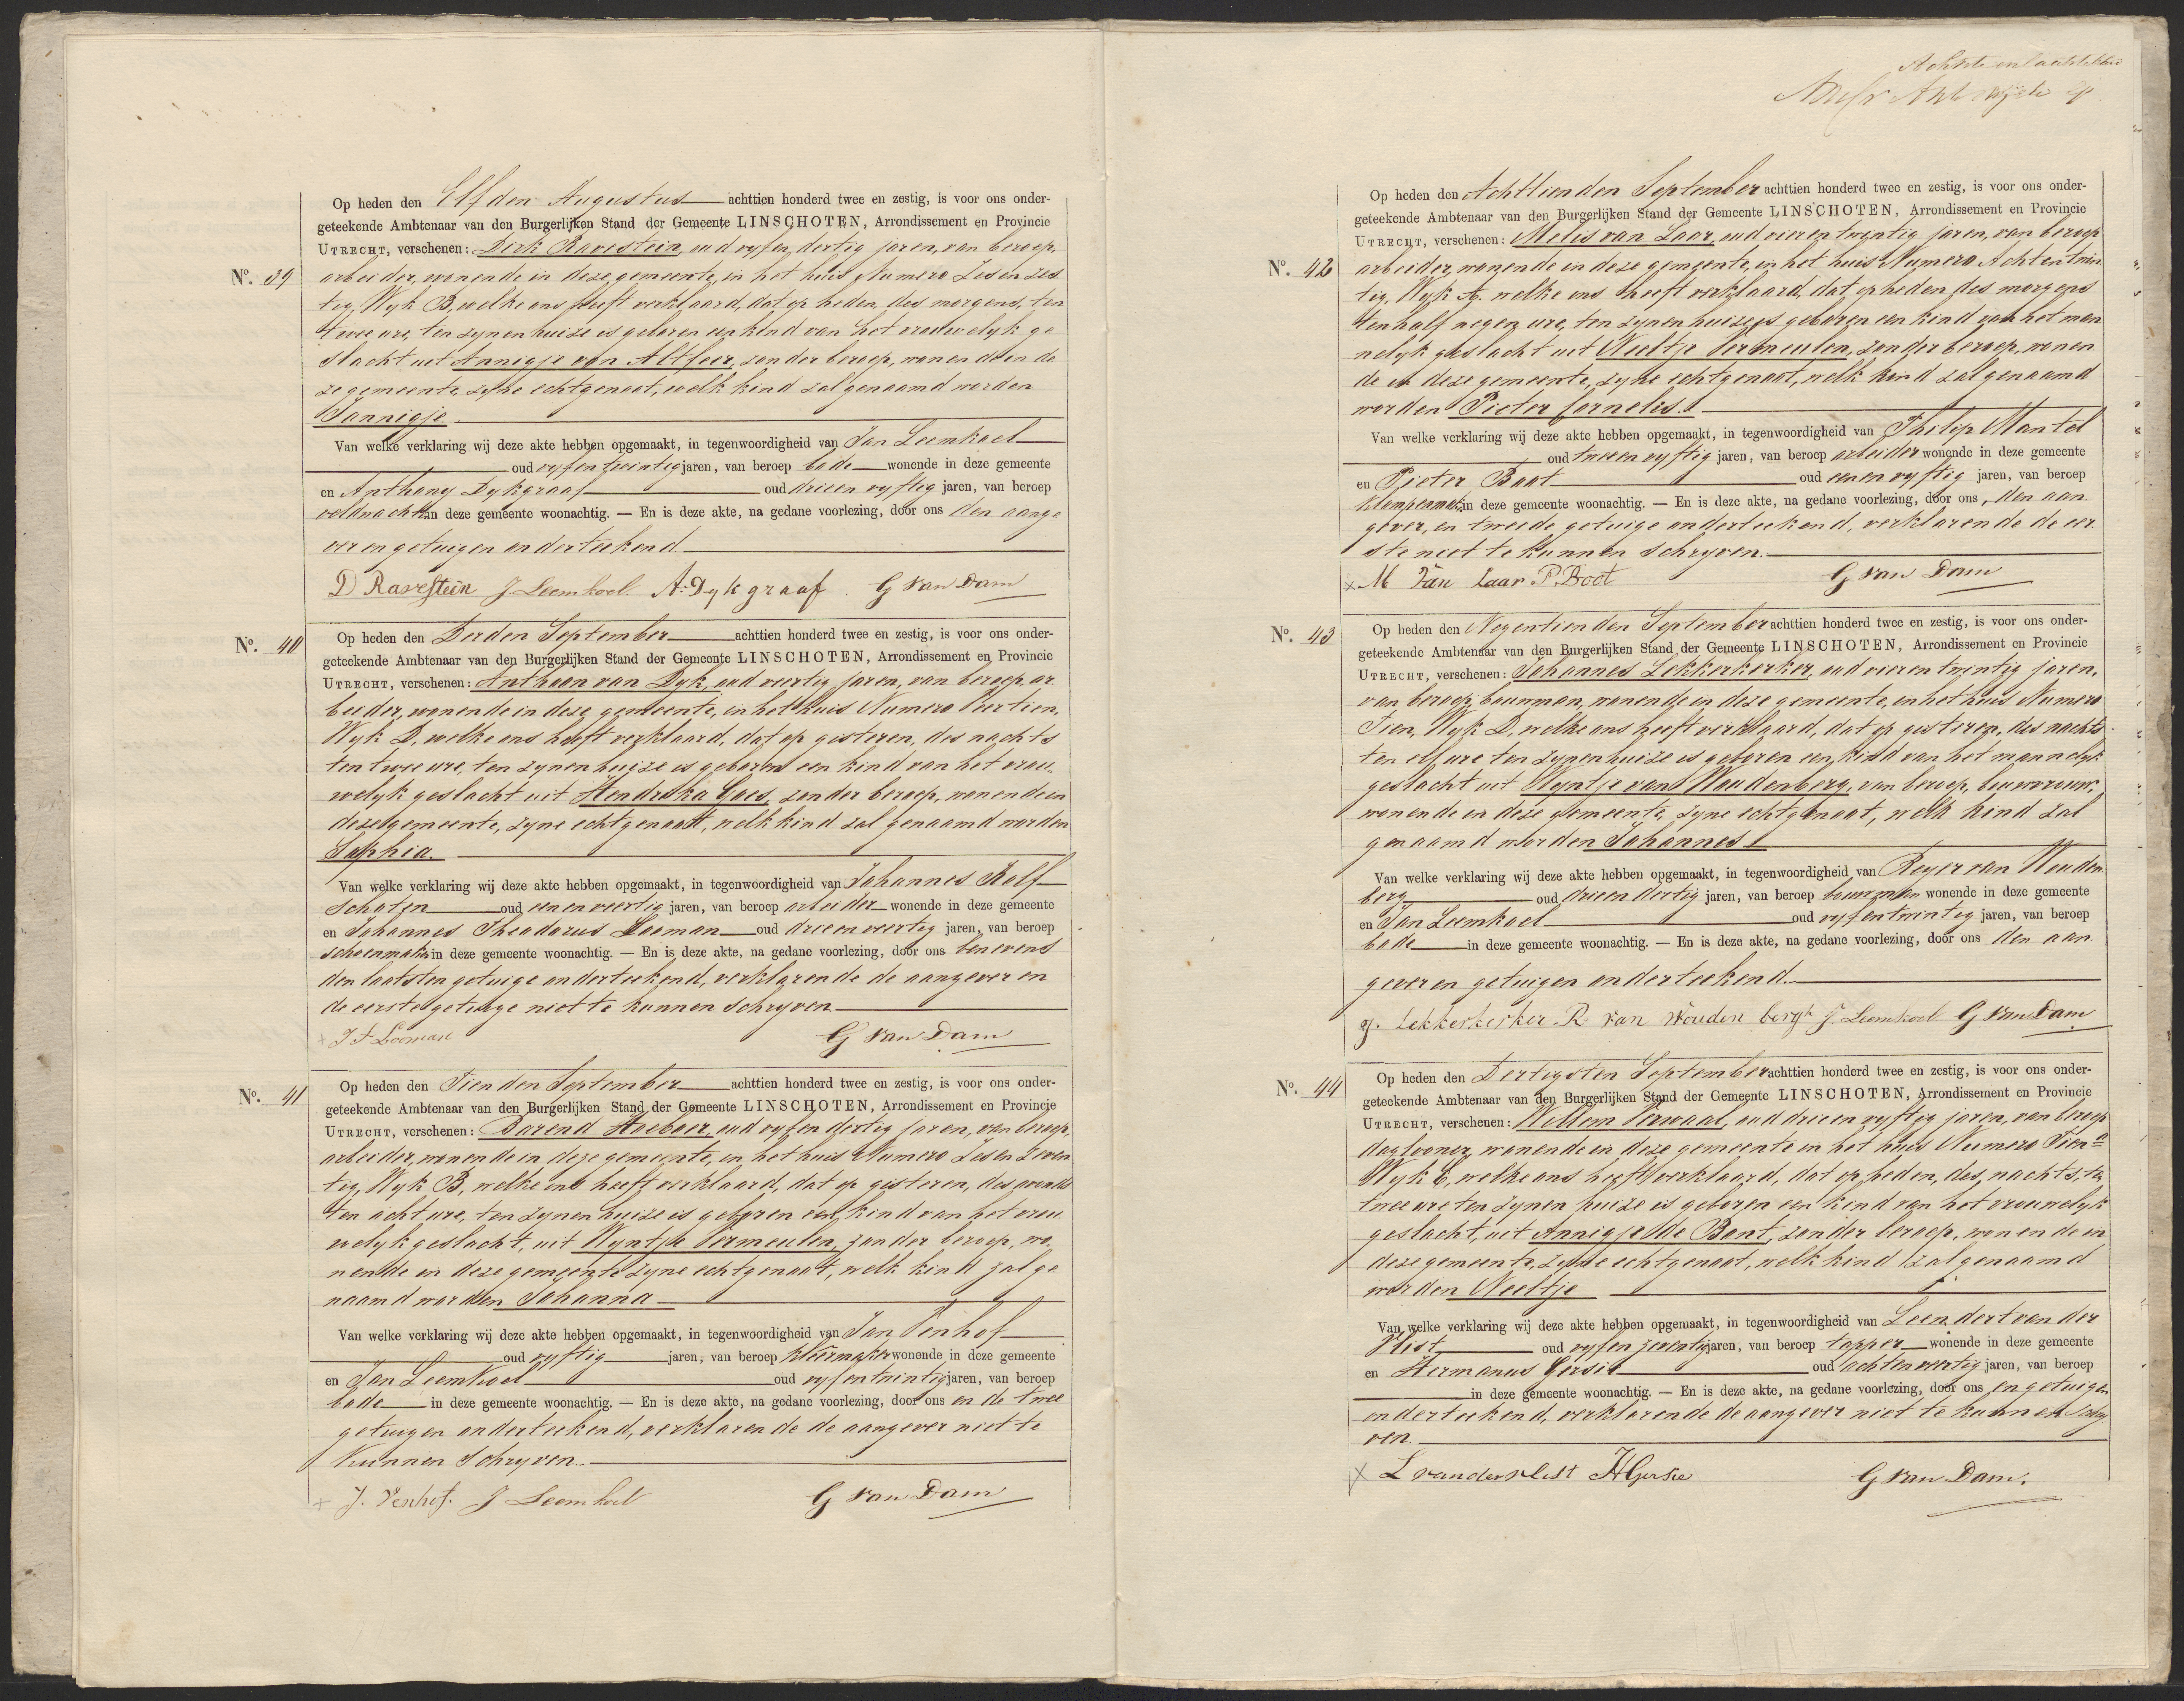 Op heden den Elfden Augustus achttien honderd twee en zestig, is voor ons onder-
geteekende Ambtenaar van den Burgerlijken Stand der Gemeente LINSCHOTEN, Arrondissement en Provincie
UTRECHT, verschenen: Dirk Ravestein, oud vyfen dertig jaren, van beroep
No. 39
arbeider, wonende in deze gemeente, in het huis Numero Zesenzes
tig, Wyk B, welke ons heeft verklaard, dat op heden, des morgens, ten
twee ure, ten zynen huize is geboren een kind van het vrouwelyk ge
slacht uit Annigje van Altfeer, zonder beroep, wonende in de
ze gemeente, zyne echtgenoot, welk kind zal genaamd worden
Jannigje.
Van welke verklaring wij deze akte hebben opgemaakt, in tegenwoordigheid van Jan Leemkoel
oud vyfentwintig jaren, van beroep bode wonende in deze gemeente
en Anthony Dykgraaf oud drieen vyftig jaren, van beroep
veldwachter in deze gemeente woonachtig. — En is deze akte, na gedane voorlezing, door ons den aange
ver en getuigen onderteekend
D Ravestein J. Leemkoel. A: Dykgraaf. G van Dam
No. 40
Op heden den Derden September achttien honderd twee en zestig, is voor ons onder-
geteekende Ambtenaar van den Burgerlijken Stand der Gemeente LINSCHOTEN, Arrondissement en Provincie
UTRECHT, verschenen: Anthoon van Dyk, oud veertig jaren, van beroep ar
beider, wonende in deze gemeente, in het huis Numero Veertien,
Wyk D, welke ons heeft verklaard, dat op gisteren, des nachts
ten twee ure, ten zynen huize is geboren een kind van het vrou
welyk geslacht uit Hendrika Goes, zonder beroep, wonende in
deze gemeente, zyne echtgenoot, welk kind zal genaamd worden
Sophia.
Van welke verklaring wij deze akte hebben opgemaakt, in tegenwoordigheid van Johannes Kalf
schoten oud eenenveertig jaren, van beroep arbeider wonende in deze gemeente
en Johannes Theodorus Looman oud drieenveertig jaren, van beroep
schoenmaker in deze gemeente woonachtig. — En is deze akte, na gedane voorlezing, door ons benevens
den laatsten getuige onderteekend, verklarende de aangever en
de eerste getuige niet te kunnen schryven.
+ J T Looman G van Dam
No. 41
Op heden den Tienden September achttien honderd twee en zestig, is voor ons onder-
geteekende Ambtenaar van den Burgerlijken Stand der Gemeente LINSCHOTEN, Arrondissement en Provincie
UTRECHT, verschenen: Barend Hoeboer, oud vyfen dertig jaren, van beroep,
arbeider, wonende in deze gemeente, in het huis Numero Zesen Zeven
tig, Wyk B, welke ons heeft verklaard, dat op gisteren, des avonds
ten acht ure, ten zynen huize is geboren een kind van het vrou
welyk geslacht, uit Wyntje Vermeulen, zonder beroep, wo
nende in deze gemeente zyne echtgenoot, welk kind zal ge
naamd worden Johanna
Van welke verklaring wij deze akte hebben opgemaakt, in tegenwoordigheid van Jan Venhof
oud vyftig jaren, van beroep kleermaker wonende in deze gemeente
en Jan Leemkoel oud vyfentwintig jaren, van beroep
bode in deze gemeente woonachtig. — En is deze akte, na gedane voorlezing, door ons en de twee
getuigen onderteekend, verklarende de aangever niet te
kunnen schryven.
+ J. Venhof. J Leemkoel G van Dam
Op heden den Achttienden September achttien honderd twee en zestig, is voor ons onder-
geteekende Ambtenaar van den Burgerlijken Stand der Gemeente LINSCHOTEN, Arrondissement en Provincie
UTRECHT, verschenen: Melis van Laar, oud vierentwintig jaren, van beroep
No. 42
arbeider, wonende in deze gemeente, in het huis Numero Achtentwin
tig, Wyk A. welke ons heeft verklaard, dat op heden des morgens
ten half negen ure, ten zynen huize is geboren een kind van het man
nelyk geslacht uit Neeltje Vermeulen, zonder beroep, wonen
de in deze gemeente, zyne echtgenoot, welk kind zal genaamd
worden Pieter Cornelis.
Van welke verklaring wij deze akte hebben opgemaakt, in tegenwoordigheid van Philip Mantel
oud tweeenvyftig jaren, van beroep arbeider wonende in deze gemeente
en Pieter Boot oud eenenvyftig jaren, van beroep
klompenmak. in deze gemeente woonachtig. — En is deze akte, na gedane voorlezing, door ons, den aan
gever, en tweede getuige onderteekend, verklarende de eer
ste niet te kunnen schryven.
+ M Van Laar P. Boot G van Dam
No. 43
Op heden den Negentienden September achttien honderd twee en zestig, is voor ons onder-
geteekende Ambtenaar van den Burgerlijken Stand der Gemeente LINSCHOTEN, Arrondissement en Provincie
UTRECHT, verschenen: Johannes Lekkerkerker, oud vierentwintig jaren,
van beroep bouwman, wonende in deze gemeente, in het huis Numero
Tien, Wyk D, welke ons heeft verklaard, dat op gisteren, des nachts
ten elf ure ten zynen huize is geboren een kind van het mannelyk
geslacht uit Wyntje van Woudenberg, van beroep, bouwvrouw,
wonende in deze gemeente, zyne echtgenoot, welk kind zal
genaamd worden Johannes
Van welke verklaring wij deze akte hebben opgemaakt, in tegenwoordigheid van Reyer van Wouden
berg oud drieen dertig jaren, van beroep bouwman wonende in deze gemeente
en Jan Leemkoel oud vyfentwintig jaren, van beroep
bode in deze gemeente woonachtig. — En is deze akte, na gedane voorlezing, door ons den aan
gever en getuigen onderteekend.
J. Lekkerkerker. R van Wouden bergh J Leemkoel G van Dam
No. 44
Op heden den Dertigsten September achttien honderd twee en zestig, is voor ons onder-
geteekende Ambtenaar van den Burgerlijken Stand der Gemeente LINSCHOTEN, Arrondissement en Provincie
UTRECHT, verschenen: Willem Verwaal, oud drieen vyftig jaren, van beroep
daglooner, wonende in deze gemeente in het huis Numero Tien a
Wyk C, welke ons heeft verklaard, dat op heden, des nachts, ten
twee ure ten zynen huize is geboren een kind van het vrouwelyk
geslacht, uit Annigje de Bont, zonder beroep, wonende in
deze gemeente, zyne echtgenoot, welk kind zal genaamd
worden Neeltje
Van welke verklaring wij deze akte hebben opgemaakt, in tegenwoordigheid van Leendert van der
Vlist oud vyfen zeventig jaren, van beroep tapper wonende in deze gemeente
en Hermanus Gersie oud achtenveertig jaren, van beroep
in deze gemeente woonachtig. — En is deze akte, na gedane voorlezing, door ons en getuigen
onderteekend, verklarende de aangever niet te kunnen schry
ven.
+ L van der vlist HGersie G van Dam.